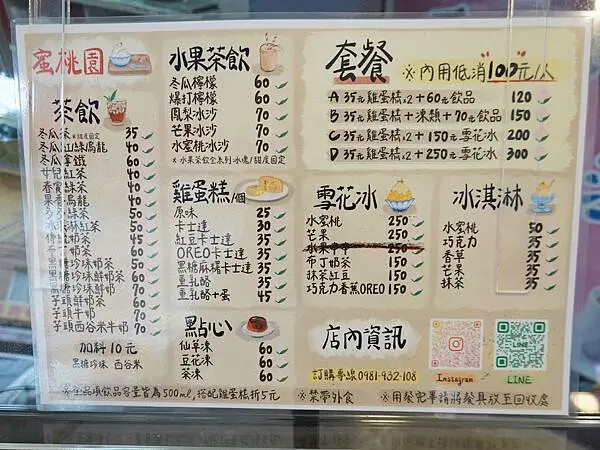 蜜桃園
茶飲
冬瓜茶 ※甜度固定 35
冬瓜紅/綠/烏龍 40
冬瓜拿鐵 60
女兒紅茶 40
茶 40
烏龍 40
綠茶 50
紅茶 50
奶茶 45
奶茶 50
糖珍珠奶茶 50
糖珍珠鮮奶茶 60
糖珍珠鮮奶 70
芋頭鮮奶茶 70
芋頭牛奶 70
芋頭西谷米牛奶 70
加料10元
黑糖珍珠 西谷米
水果茶飲
冬瓜檸檬 60
爆打檸檬 60
鳳梨冰沙 70
芒果冰沙 70
水蜜桃冰沙 70
※水果茶飲全系列冰塊/甜度固定
雞蛋糕/個
原味 25
卡士達 30
紅豆卡士達 35
OREO卡士達 35
黑糖麻糬卡士達 35
重乳酪 35
重乳酪+蛋 45
點心
仙草凍 60
豆花凍 60
茶凍 60
套餐
※內用低消100元/人
A 35元雞蛋糕x2+60元飲品 120
B 35元雞蛋糕+凍類+70元飲品 150
C 35元雞蛋糕x2+150元雪花冰 200
D 35元雞蛋糕x2+250元雪花冰 300
雪花冰
水蜜桃 250
芒果 250
水果串串 250
布丁奶茶 150
抹茶紅豆 150
巧克力香蕉OREO 150
冰淇淋
水蜜桃 50
巧克力 35
香草 35
芒果 35
抹茶 35
店內資訊
訂購專線 0981-932-108
Instagram
LINE
※全品項飲品容量皆為500ml,搭配雞蛋糕折5元
※禁帶外食
※用餐完畢請將餐具放至回收處